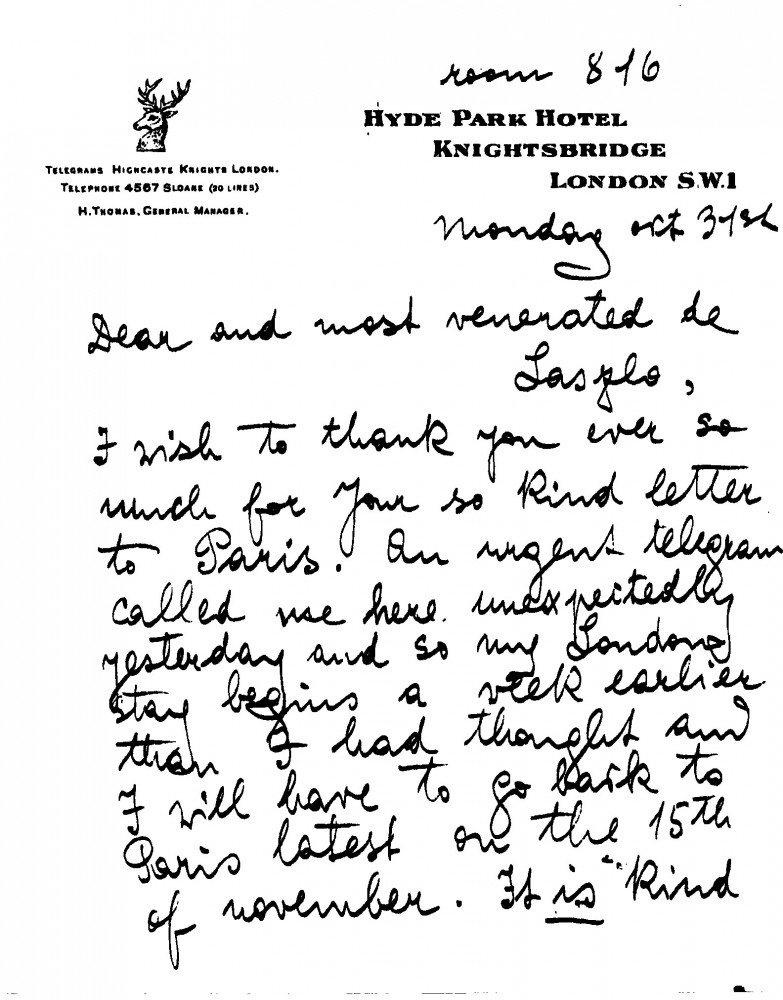 room 816
HYDE PARK HOTEL
KNIGHTSBRIDGE
LONDON S.W.1
TELEGRAMS HIGHCASTE KNIGHTS LONDON.
TELEPHONE 4567 SLOANE (20 LINES)
H. THOMAS, GENERAL MANAGER.
Monday oct 31st
Dear and most venerated de
Laszlo,
I wish to thank you ever so
much for Your so kind letter
to Paris. An urgent telegram
called me here unexpectedly
yesterday and so my London
stay begins a week earlier
than I had thought and
I will have to go back to
Paris latest on the 15th
of november. It is kind